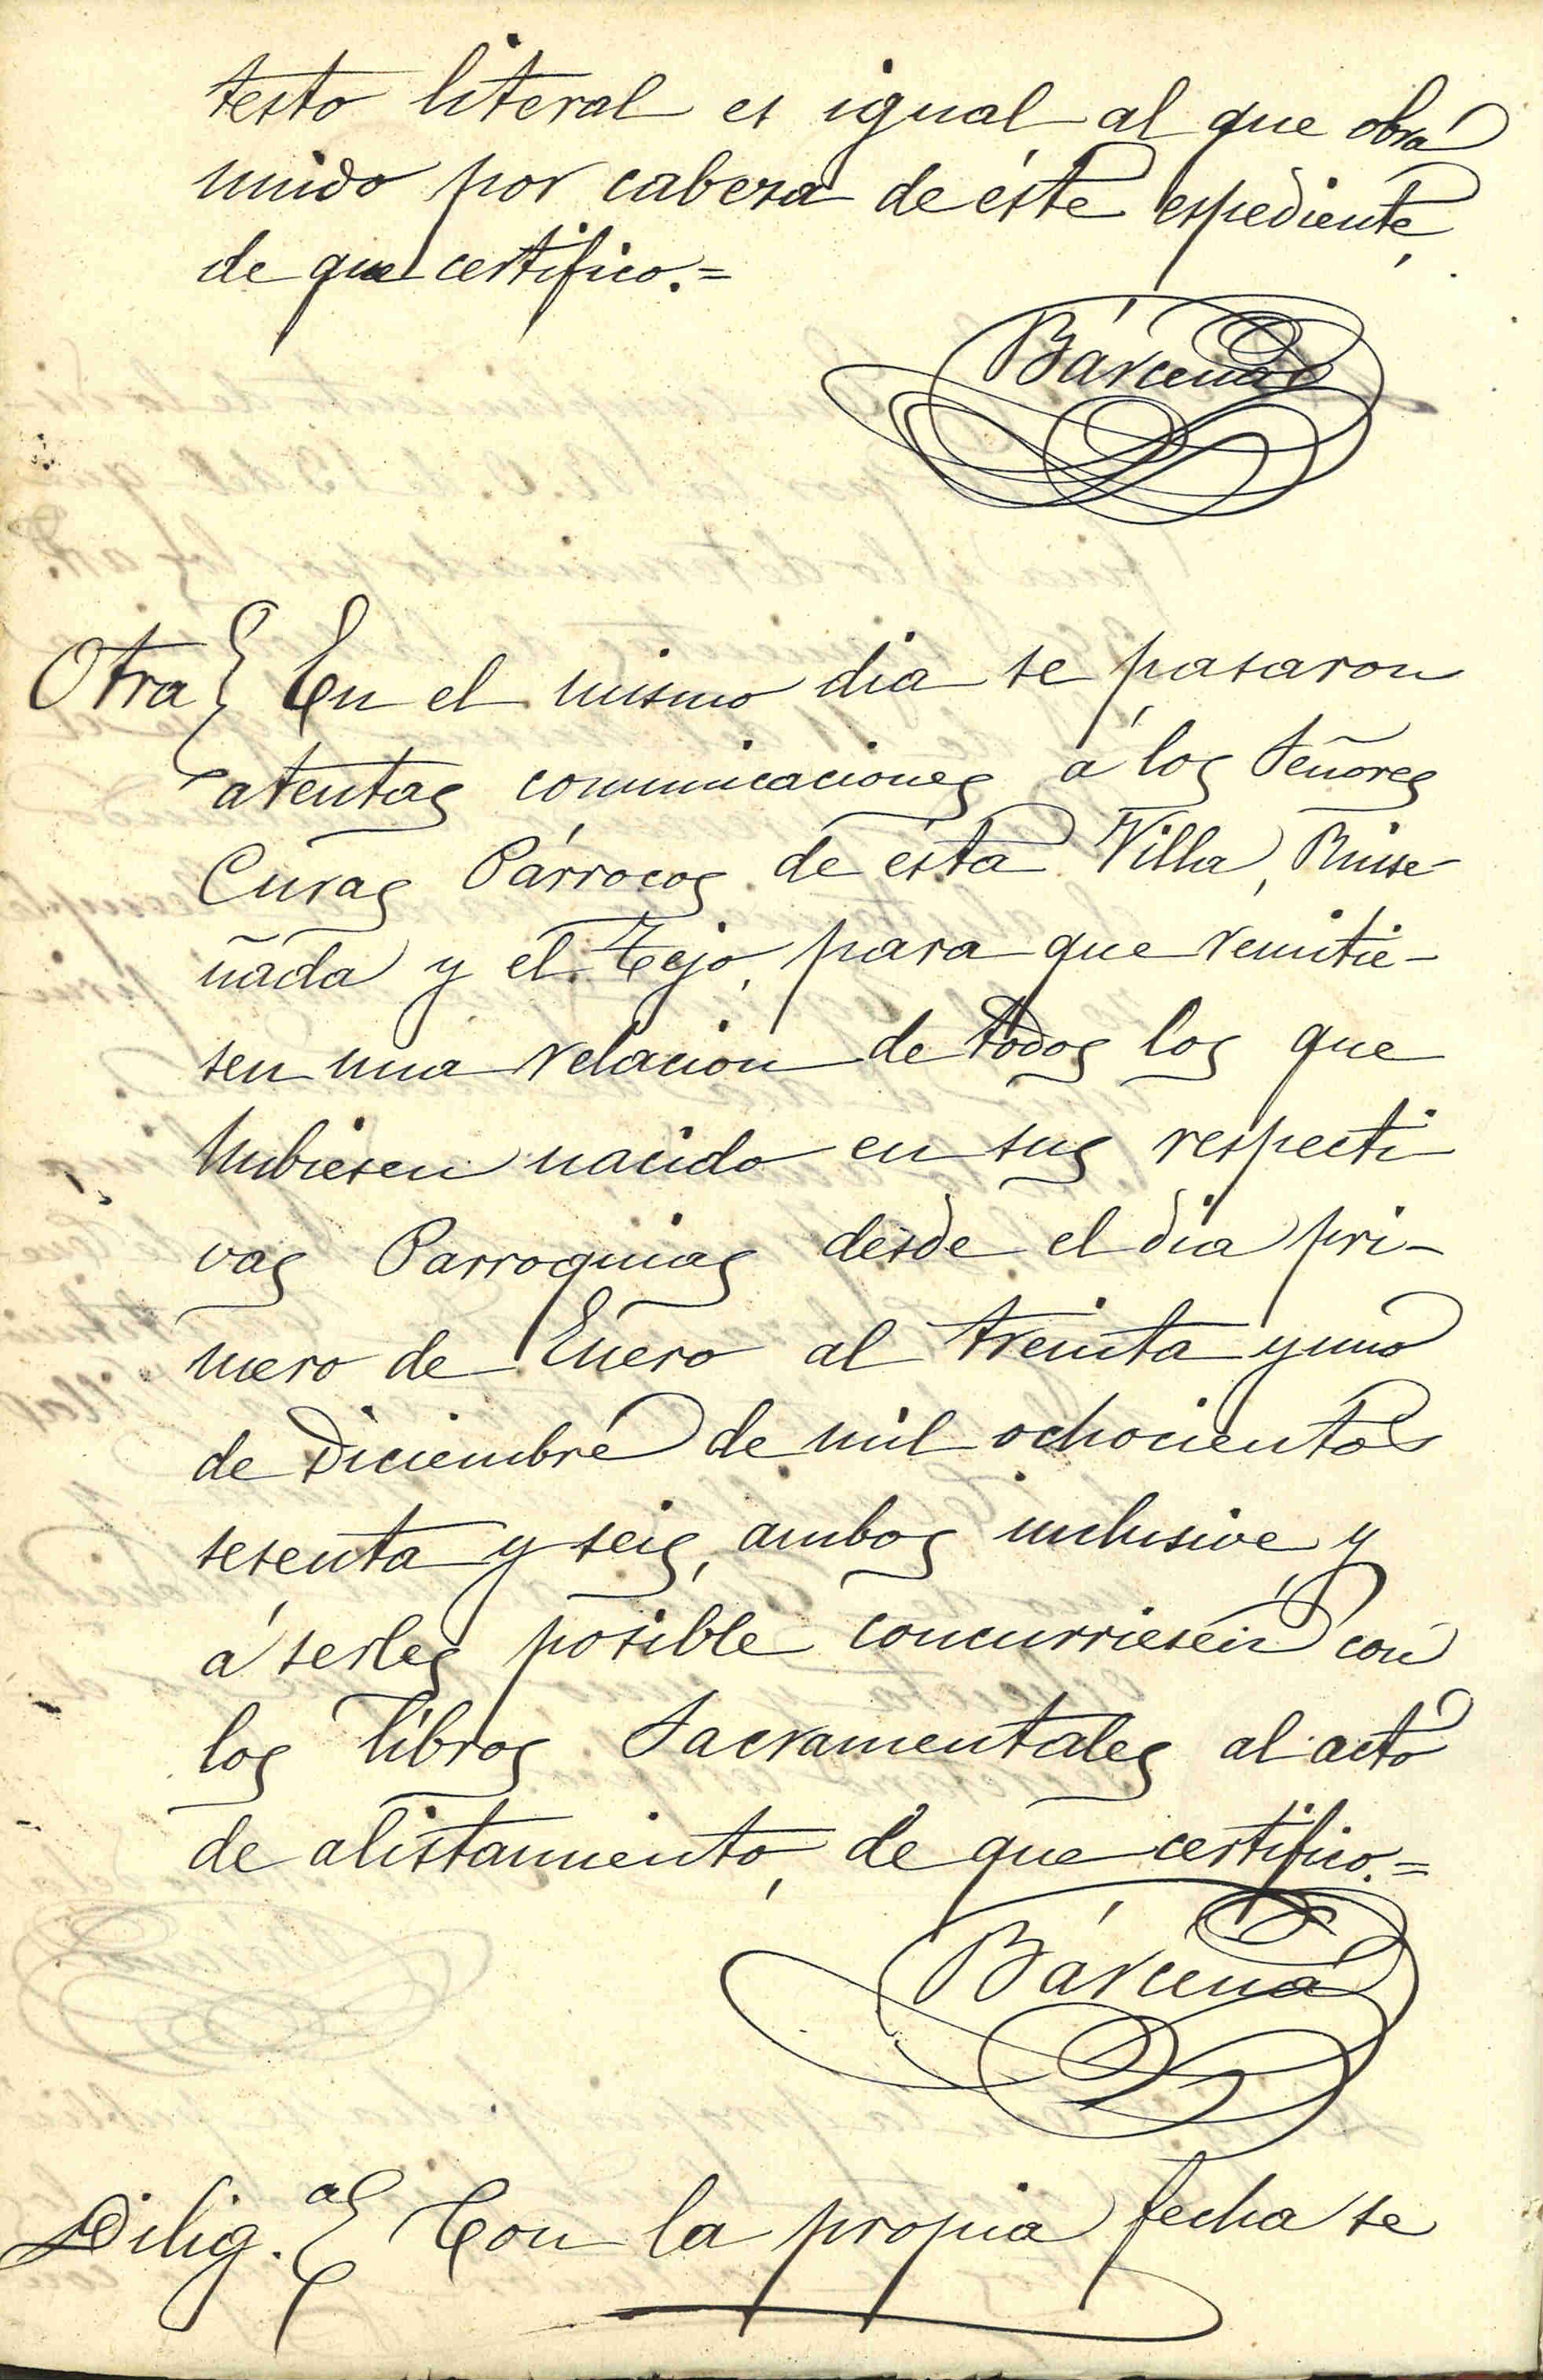 testo literal es igual al que obra
unido por cabeza de éste espediente,
de que certifico.=
Bárcena
Otra } En el mismo dia se pasaron
atentas comunicaciones á los Señores
Curas Párrocos de ésta Villa, Ruise-
ñada y el Tejo, para que remitie-
sen una relacion de todos los que
hubiesen nacido en sus respecti
vas Parroquias desde el dia pri-
mero de Enero al treinta y uno
de Diciembre de mil ochocientos
sesenta y seis, ambos inclusive, y
á serles posible concurriesen con
los libros Sacramentales al acto
de alistamiento, de que certifico.=
Bárcena
Dilig.ª } Con la propia fecha se